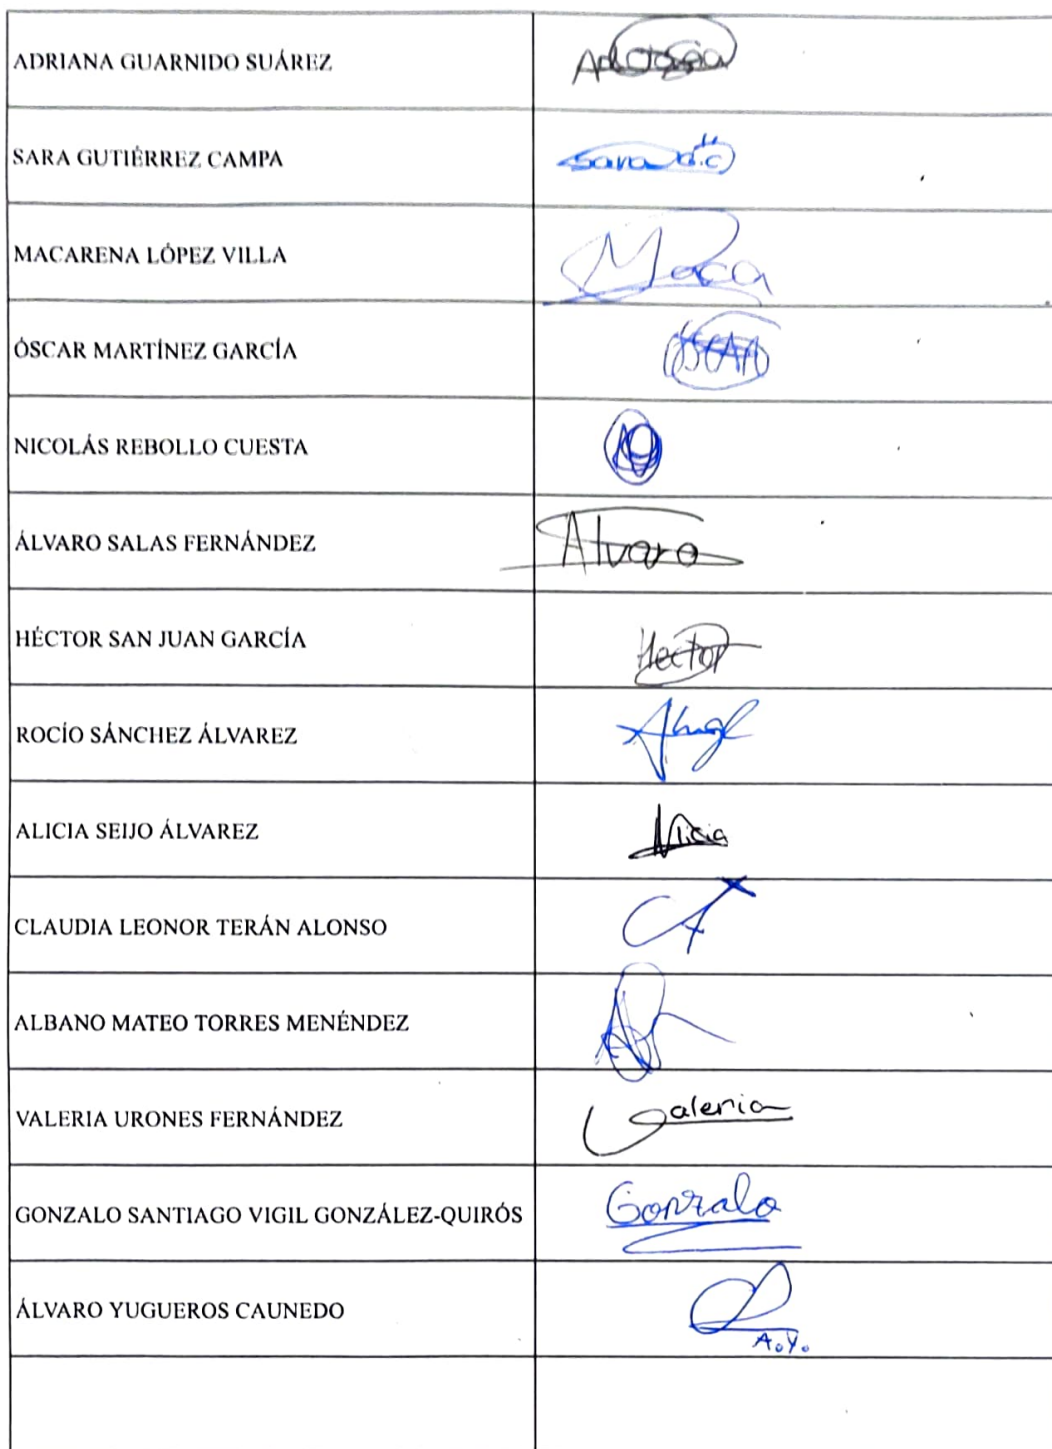 ADRIANA GUARNIDO SUÁREZ
SARA GUTIÉRREZ CAMPA Sara G.C
MACARENA LÓPEZ VILLA Maca
ÓSCAR MARTÍNEZ GARCÍA
NICOLÁS REBOLLO CUESTA
ÁLVARO SALAS FERNÁNDEZ Alvaro
HÉCTOR SAN JUAN GARCÍA Hector
ROCÍO SÁNCHEZ ÁLVAREZ
ALICIA SEIJO ÁLVAREZ Alicia
CLAUDIA LEONOR TERÁN ALONSO
ALBANO MATEO TORRES MENÉNDEZ
VALERIA URONES FERNÁNDEZ Valeria
GONZALO SANTIAGO VIGIL GONZÁLEZ-QUIRÓS Gonzalo
ÁLVARO YUGUEROS CAUNEDO A.Y.